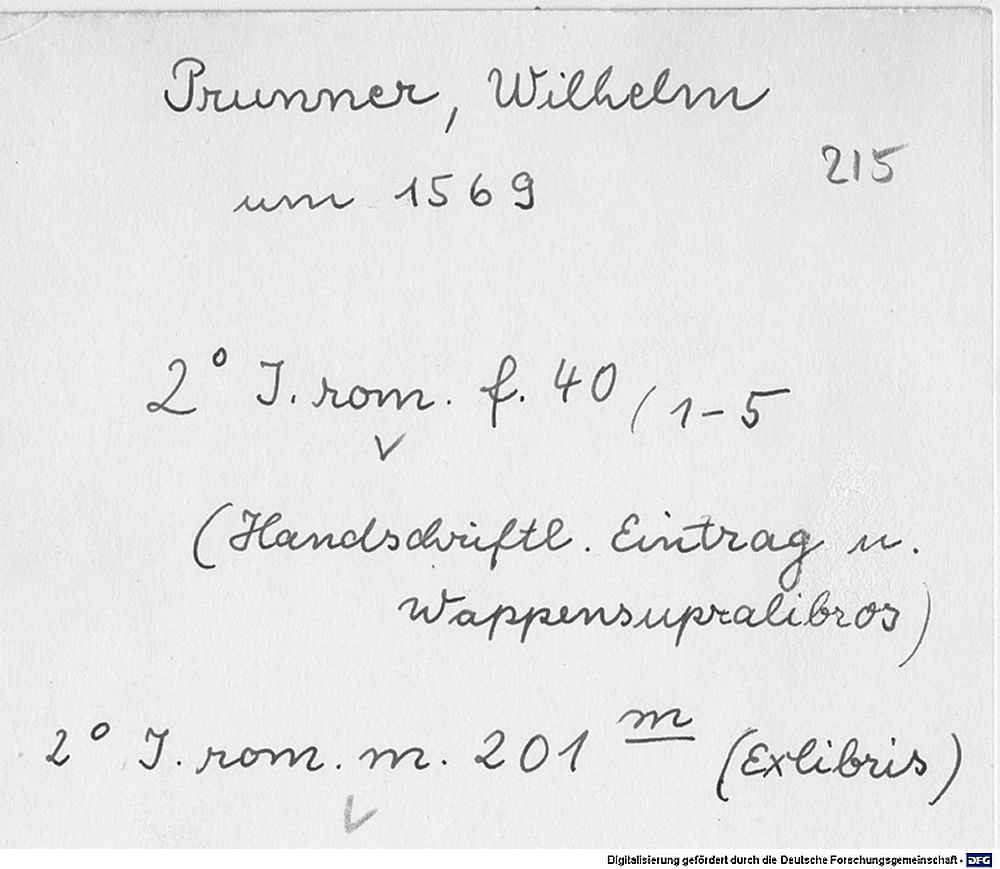 Prunner, Wilhelm
215
um 1569
2° J. rom. f. 40/1-5
(Handschriftl. Eintrag u.
Wappensupralibros)
2° J. rom. m. 201 m (Exlibris)
Digitalisierung gefördert durch die Deutsche Forschungsgemeinschaft - DFG